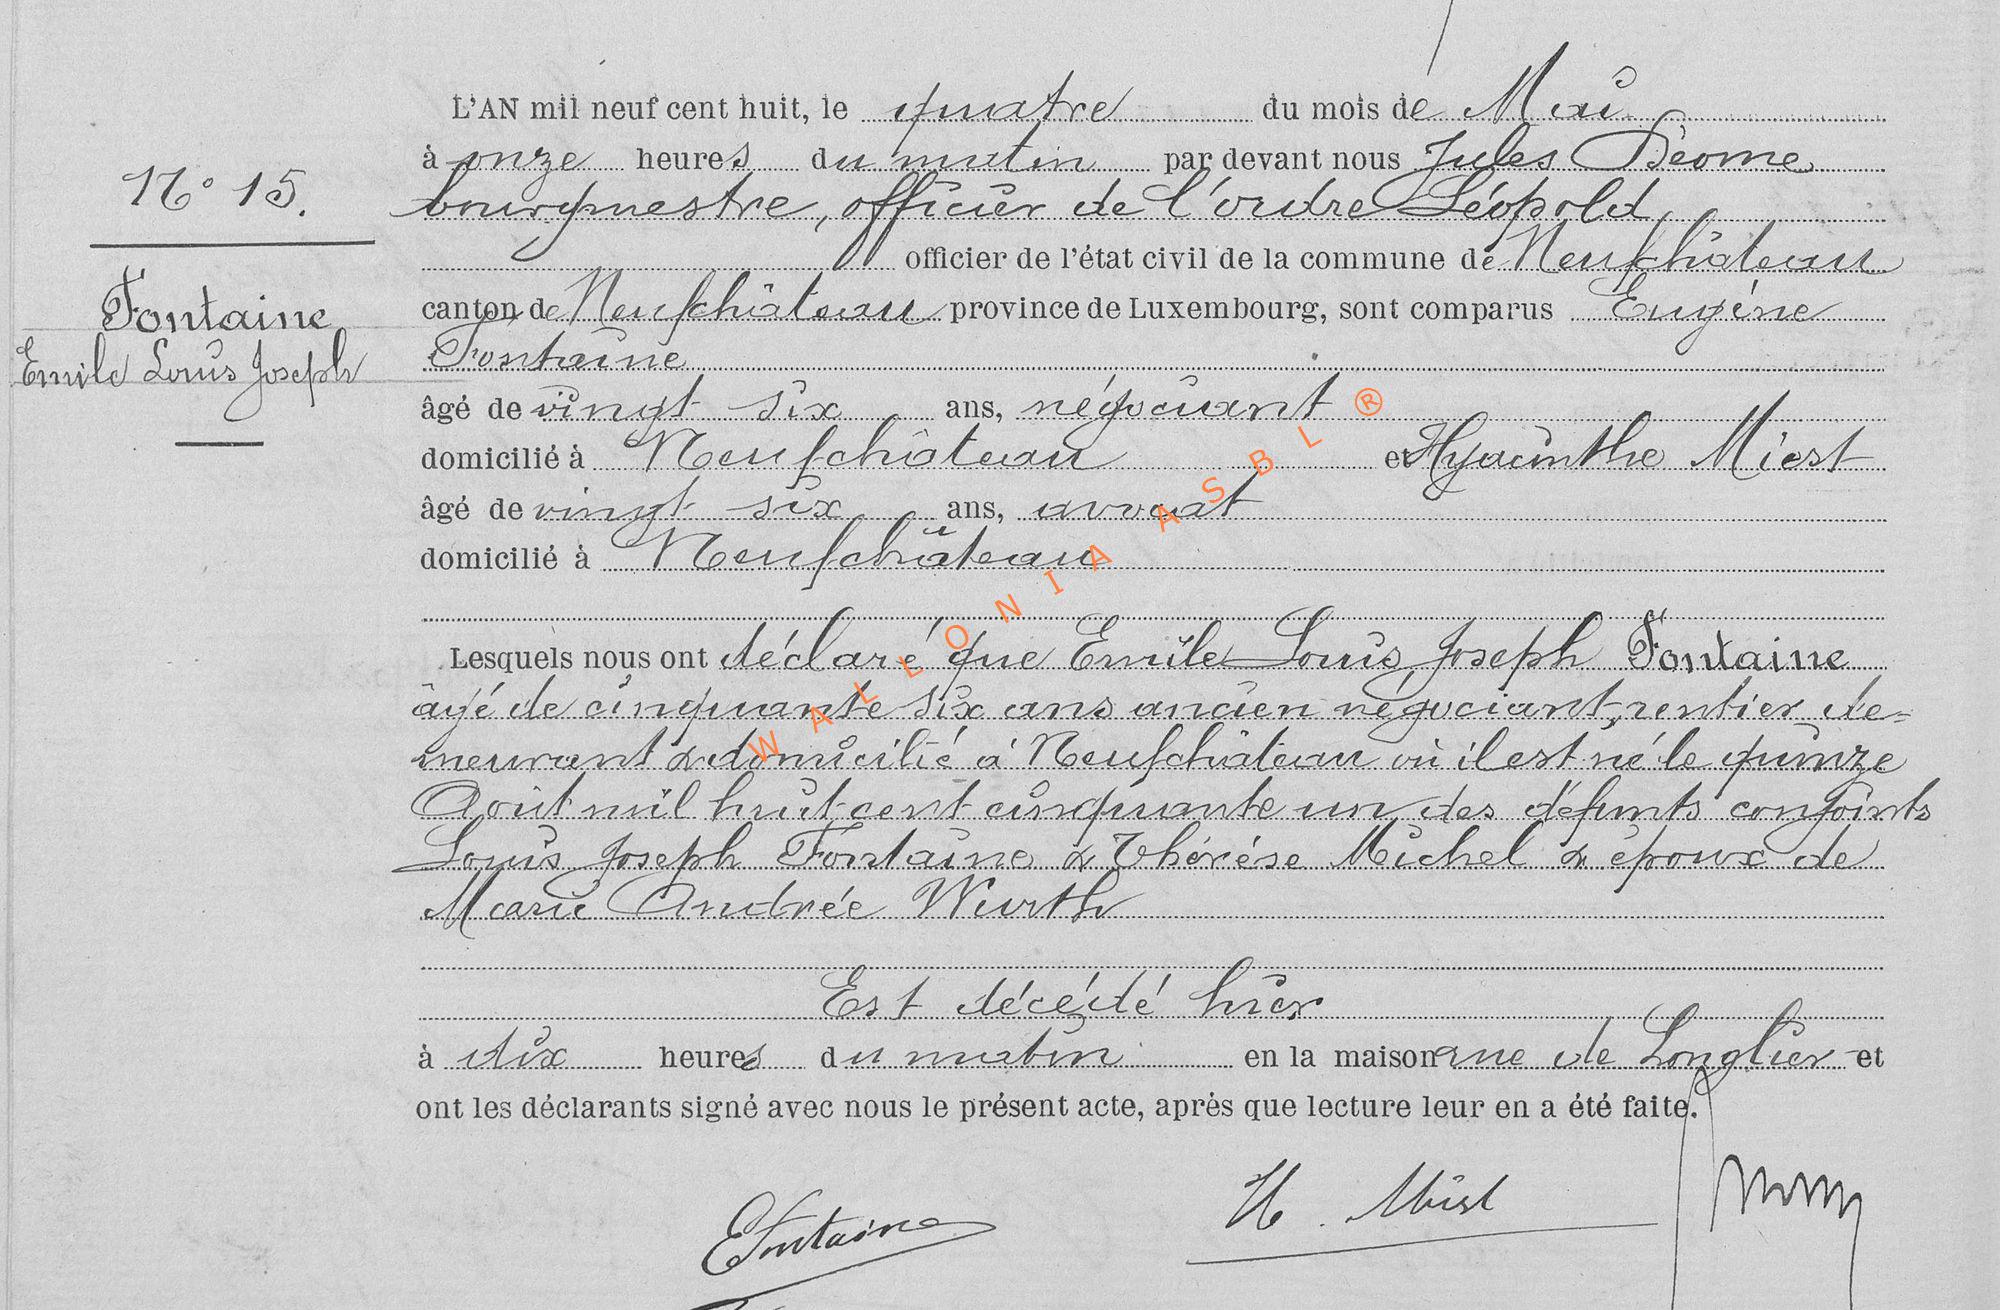 L'AN mil neuf cent huit, le quatre du mois de Mai
à onze heures du matin par devant nous Jules
bourgmestre, officier de l'ordre Léopold
officier de l'état civil de la commune de Neufchâteau
N° 15.
canton de Neufchâteau province de Luxembourg, sont comparus Eugène
Fontaine
Fontaine
Emile Louis Joseph
âgé de vingt six ans, négociant
domicilié à Neufchâteau et Hyacinthe Miest
âgé de vingt six ans, avocat
domicilié à Neufchâteau
Lesquels nous ont déclaré que Emile Louis Joseph Fontaine
âgé de cinquante six ans ancien négociant, rentier de=
meurant & domicilié à Neufchâteau où il est né le quinze
Août mil huit cent cinquante un des défunts conjoints
Louis Joseph Fontaine & Thérèse Michel & époux de
Marie Andrée Wurth
Est décédé hier
à dix heures du matin en la maison rue de Longlier et
ont les déclarants signé avec nous le présent acte, après que lecture leur en a été faite.
EFontaine
H. Miest
WALLONIA ASBL ®